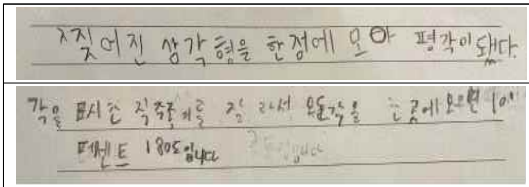 찢어진 삼각형을 한점에 모아 평각이 됐다.
각을 표시한 직 잘라서 모든각을 한 곳에 모으면 100
퍼센트 180도입니다